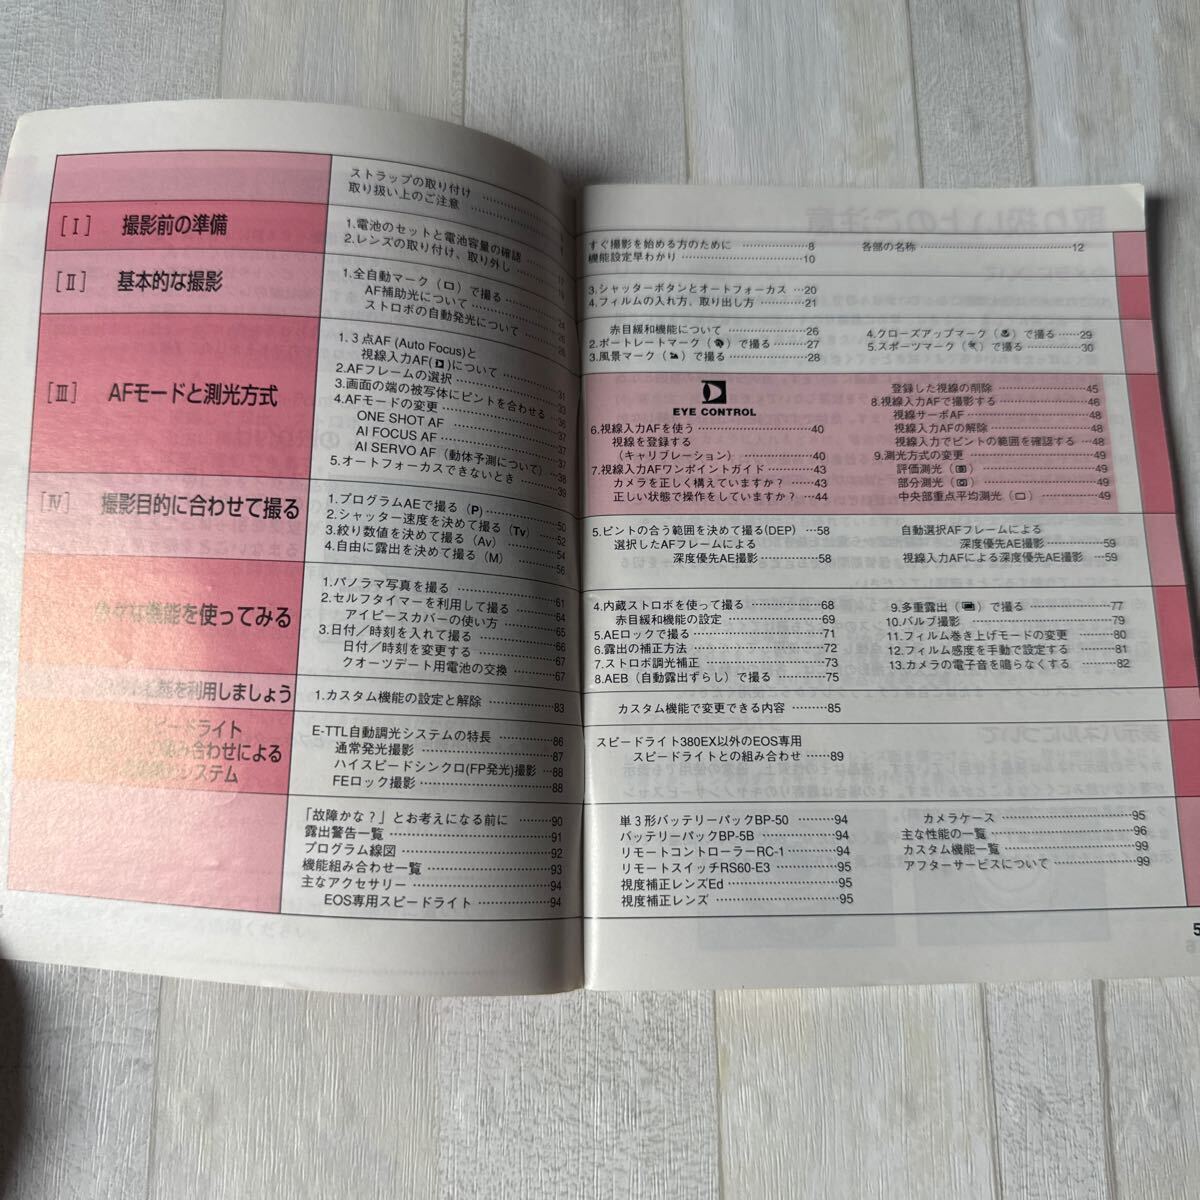 ストラップの取り付け
取り扱い上のご注意
[Ⅰ] 撮影前の準備
1.電池のセットと電池容量の確認
2.レンズの取り付け、取り外し
[Ⅱ] 基本的な撮影
1.全自動マーク（□）で撮る
AF補助光について
ストロボの自動発光について
[Ⅲ] AFモードと測光方式
1.３点AF (Auto Focus)と
視線入力AF()について
2.AFフレームの選択 31
3.画面の端の被写体にピントを合わせる 33
4.AFモードの変更 36
ONE SHOT AF 37
AI FOCUS AF 37
AI SERVO AF（動体予測について） 38
5.オートフォーカスできないとき 39
[Ⅳ] 撮影目的に合わせて撮る
1.プログラムAEで撮る（P） 50
2.シャッター速度を決めて撮る（Tv） 52
3.絞り数値を決めて撮る（Av） 54
4.自由に露出を決めて撮る（M） 56
な機能を使ってみる
1.パノラマ写真を撮る 61
2.セルフタイマーを利用して撮る 64
アイピースカバーの使い方 65
3.日付／時刻を入れて撮る 66
日付／時刻を変更する 67
クオーツデート用電池の交換 67
を利用しましょう
1.カスタム機能の設定と解除 83
ピードライト
み合わせによる
システム
E-TTL自動調光システムの特長 86
通常発光撮影 87
ハイスピードシンクロ(FP発光)撮影 88
FEロック撮影 88
「故障かな？」とお考えになる前に 90
露出警告一覧 91
プログラム線図 92
機能組み合わせ一覧 93
主なアクセサリー 94
EOS専用スピードライト 94
すぐ撮影を始める方のために 8
機能設定早わかり 10
各部の名称 12
3.シャッターボタンとオートフォーカス 20
4.フィルムの入れ方、取り出し方 21
赤目緩和機能について 26
2.ポートレートマーク（）で撮る 27
3.風景マーク（）で撮る 28
4.クローズアップマーク（）で撮る 29
5.スポーツマーク（）で撮る 30
EYE CONTROL
6.視線入力AFを使う 40
視線を登録する
（キャリブレーション） 40
7.視線入力AFワンポイントガイド 43
カメラを正しく構えていますか？ 43
正しい状態で操作をしていますか？ 44
登録した視線の削除 45
8.視線入力AFで撮影する 46
視線サーボAF 48
視線入力AFの解除 48
視線入力でピントの範囲を確認する 48
9.測光方式の変更 49
評価測光（） 49
部分測光（） 49
中央部重点平均測光（） 49
5.ピントの合う範囲を決めて撮る(DEP) 58
選択したAFフレームによる
深度優先AE撮影 58
自動選択AFフレームによる
深度優先AE撮影 59
視線入力AFによる深度優先AE撮影 59
4.内蔵ストロボを使って撮る 68
赤目緩和機能の設定 69
5.AEロックで撮る 71
6.露出の補正方法 72
7.ストロボ調光補正 73
8.AEB（自動露出ずらし）で撮る 75
9.多重露出（）で撮る 77
10.バルブ撮影 79
11.フィルム巻き上げモードの変更 80
12.フィルム感度を手動で設定する 81
13.カメラの電子音を鳴らなくする 82
カスタム機能で変更できる内容 85
スピードライト380EX以外のEOS専用
スピードライトとの組み合わせ 89
単３形バッテリーパックBP-50 94
バッテリーパックBP-5B 94
リモートコントローラーRC-1 94
リモートスイッチRS60-E3 95
視度補正レンズEd 95
視度補正レンズ 95
カメラケース 95
主な性能の一覧 96
カスタム機能一覧 99
アフターサービスについて 99
5